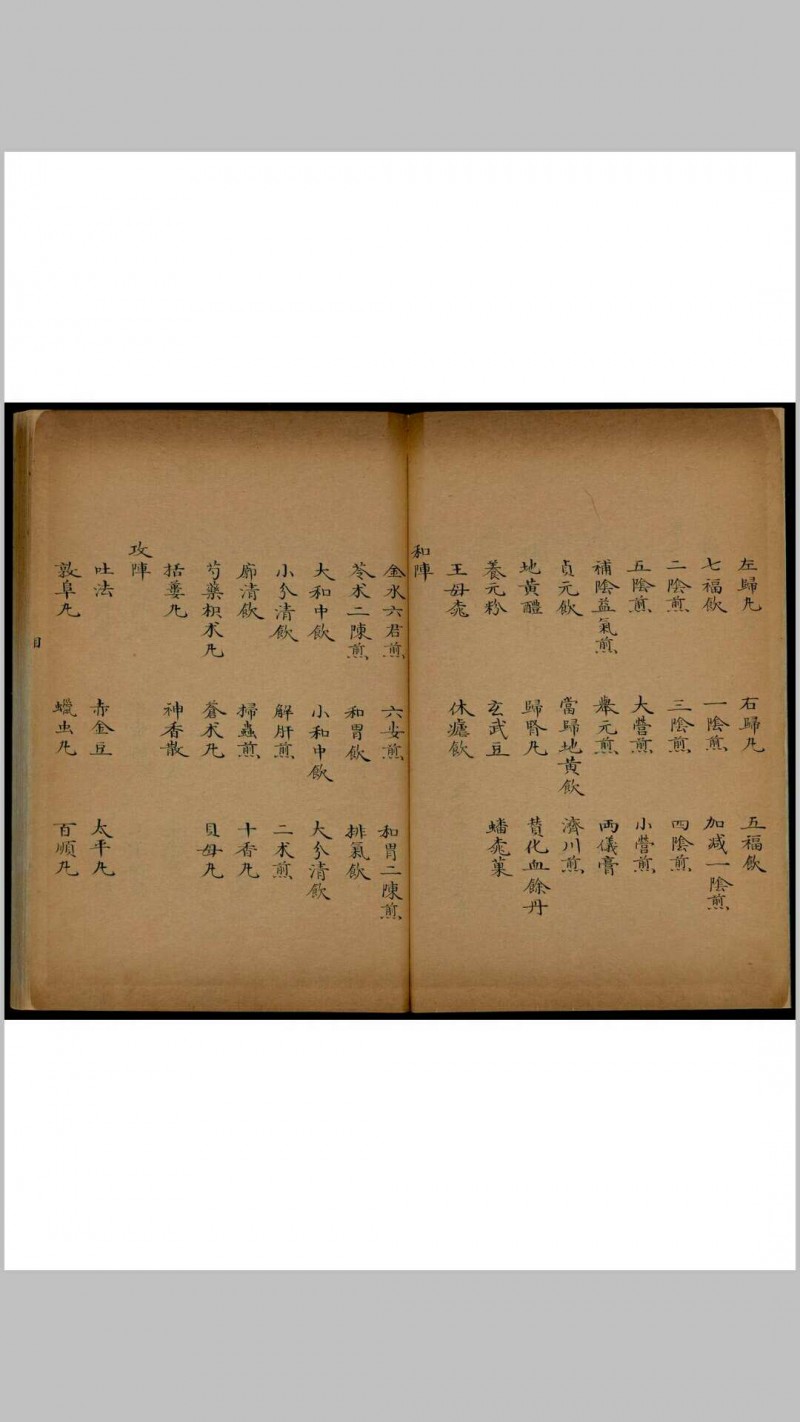 左歸凡 右歸凡 五福飲
七福飲 一陰煎 加减一陰煎
二陰煎 三陰煎 四陰煎
五陰煎 大營煎 小營煎
補陰益氣煎 舉元煎 兩儀膏
貞元飲 當歸地黄飲 濟川煎
地黃醴 歸腎凡 贊化血餘丹
養元粉 玄武豆 蟠桃菓
王母桃 休瘧飲
和陣
金水六君煎 六安煎 和胃二陳煎
苓术二陳煎 和胃飲 排氣飲
大和中飲 小和中飲 大分清飲
小分清飲 解肝煎 二术煎
廓清飲 掃蟲煎 十香凡
芍藥枳术凡 蒼术凡 貝母凡
括蔞凡 神香散
攻陣
吐法 赤金豆 太平凡
敦阜凡 蠟虫凡 百順凡
目